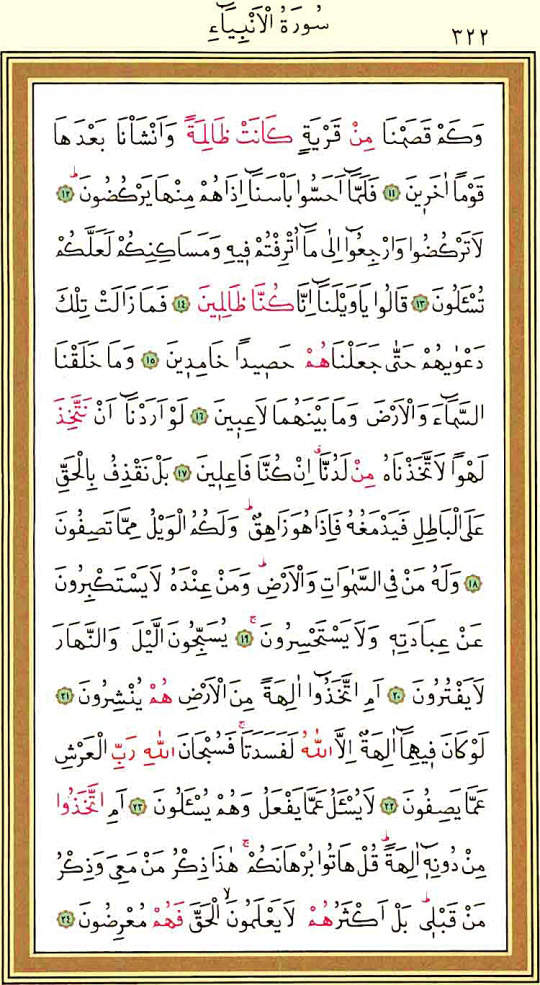 سُورَةُ الْاَنْبِيَٓاءِ
٣٢٢
وَكَمْ قَصَمْنَا مِنْ قَرْيَةٍ كَانَتْ ظَالِمَةً وَاَنْشَأْنَا بَعْدَهَا
قَوْمًا اٰخَر۪ينَ ﴿١١﴾ فَلَمَّٓا اَحَسُّوا بَأْسَنَٓا اِذَا هُمْ مِنْهَا يَرْكُضُونَۜ ﴿١٢﴾
لَا تَرْكُضُوا وَارْجِعُٓوا اِلٰى مَٓا اُتْرِفْتُمْ ف۪يهِ وَمَسَاكِنِكُمْ لَعَلَّكُمْ
تُسْـَٔلُونَ ﴿١٣﴾ قَالُوا يَا وَيْلَنَٓا اِنَّا كُنَّا ظَالِم۪ينَ ﴿١٤﴾ فَمَا زَالَتْ تِلْكَ
دَعْوٰيهُمْ حَتّٰى جَعَلْنَاهُمْ حَص۪يدًا خَامِد۪ينَ ﴿١٥﴾ وَمَا خَلَقْنَا
السَّمَٓاءَ وَالْاَرْضَ وَمَا بَيْنَهُمَا لَاعِب۪ينَ ﴿١٦﴾ لَوْ اَرَدْنَٓا اَنْ نَتَّخِذَ
لَهْوًا لَاتَّخَذْنَاهُ مِنْ لَدُنَّاۗ اِنْ كُنَّا فَاعِل۪ينَ ﴿١٧﴾ بَلْ نَقْذِفُ بِالْحَقِّ
عَلَى الْبَاطِلِ فَيَدْمَغُهُ فَاِذَا هُوَ زَاهِقٌۜ وَلَكُمُ الْوَيْلُ مِمَّا تَصِفُونَ
﴿١٨﴾ وَلَهُ مَنْ فِي السَّمٰوَاتِ وَالْاَرْضِۜ وَمَنْ عِنْدَهُ لَا يَسْتَكْبِرُونَ
عَنْ عِبَادَتِه۪ وَلَا يَسْتَحْسِرُونَۚ ﴿١٩﴾ يُسَبِّحُونَ الَّيْلَ وَالنَّهَارَ
لَا يَفْتُرُونَ ﴿٢٠﴾ اَمِ اتَّخَذُٓوا اٰلِهَةً مِنَ الْاَرْضِ هُمْ يُنْشِرُونَ ﴿٢١﴾
لَوْ كَانَ ف۪يهِمَٓا اٰلِهَةٌ اِلَّا اللّٰهُ لَفَسَدَتَاۚ فَسُبْحَانَ اللّٰهِ رَبِّ الْعَرْشِ
عَمَّا يَصِفُونَ ﴿٢٢﴾ لَا يُسْـَٔلُ عَمَّا يَفْعَلُ وَهُمْ يُسْـَٔلُونَ ﴿٢٣﴾ اَمِ اتَّخَذُوا
مِنْ دُونِه۪ٓ اٰلِهَةًۜ قُلْ هَاتُوا بُرْهَانَكُمْۚ هٰذَا ذِكْرُ مَنْ مَعِيَ وَذِكْرُ
مَنْ قَبْل۪يۜ بَلْ اَكْثَرُهُمْ لَا يَعْلَمُونَۙ الْحَقَّ فَهُمْ مُعْرِضُونَ ﴿٢٤﴾